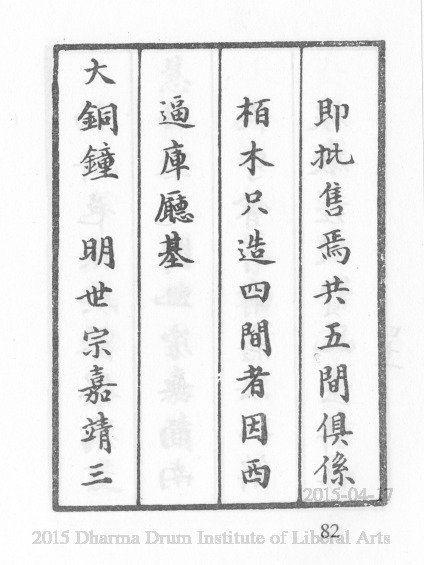 即批售焉共五間俱係
栢木只造四間者因西
逼庫廳基
大銅鐘 明世宗嘉靖三
2015-04-17
82
2015 Dharma Drum Institute of Liberal Arts